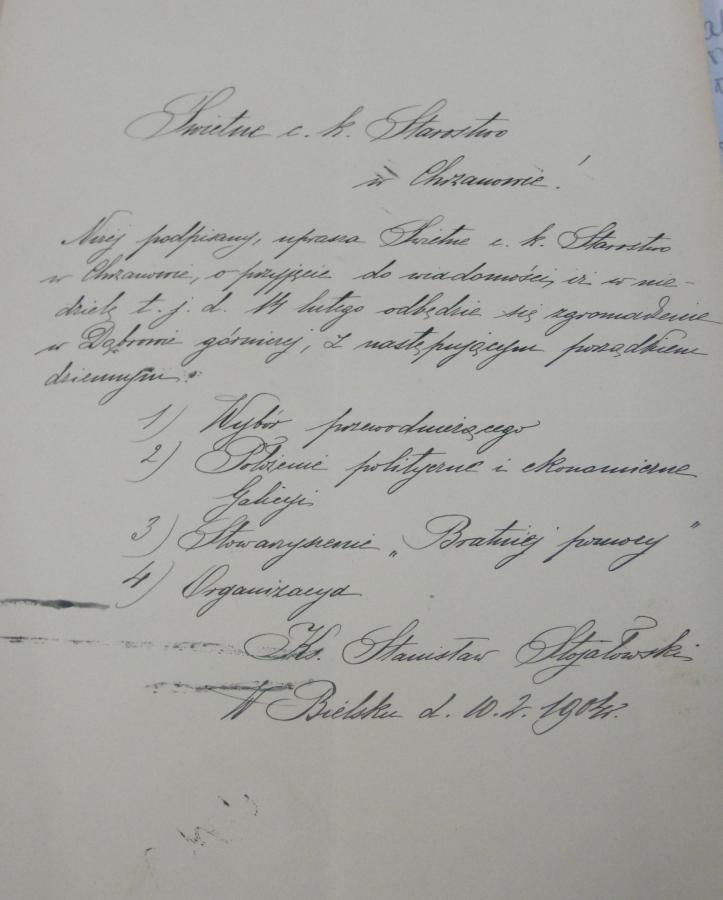 Świetne c. k. Starostwo
w Chrzanowie!
Niżej podpisany, uprasza Świetne c. k. Starostwo
w Chrzanowie, o przyjęcie do wiadomości, iż w nie-
dzielę t. j. d. 14 lutego odbędzie się zgromadzenie
w Dąbrowie górniczej, z następującym porządkiem
dziennym:
1) Wybór przewodniczącego
2) Położenie polityczne i ekonomiczne
Galicyi
3) Stowarzyszenie „Bratniej pomocy"
4) Organizacya
Ks. Stanisław Stojałowski
W Bielsku d. 10. 2. 1904r.